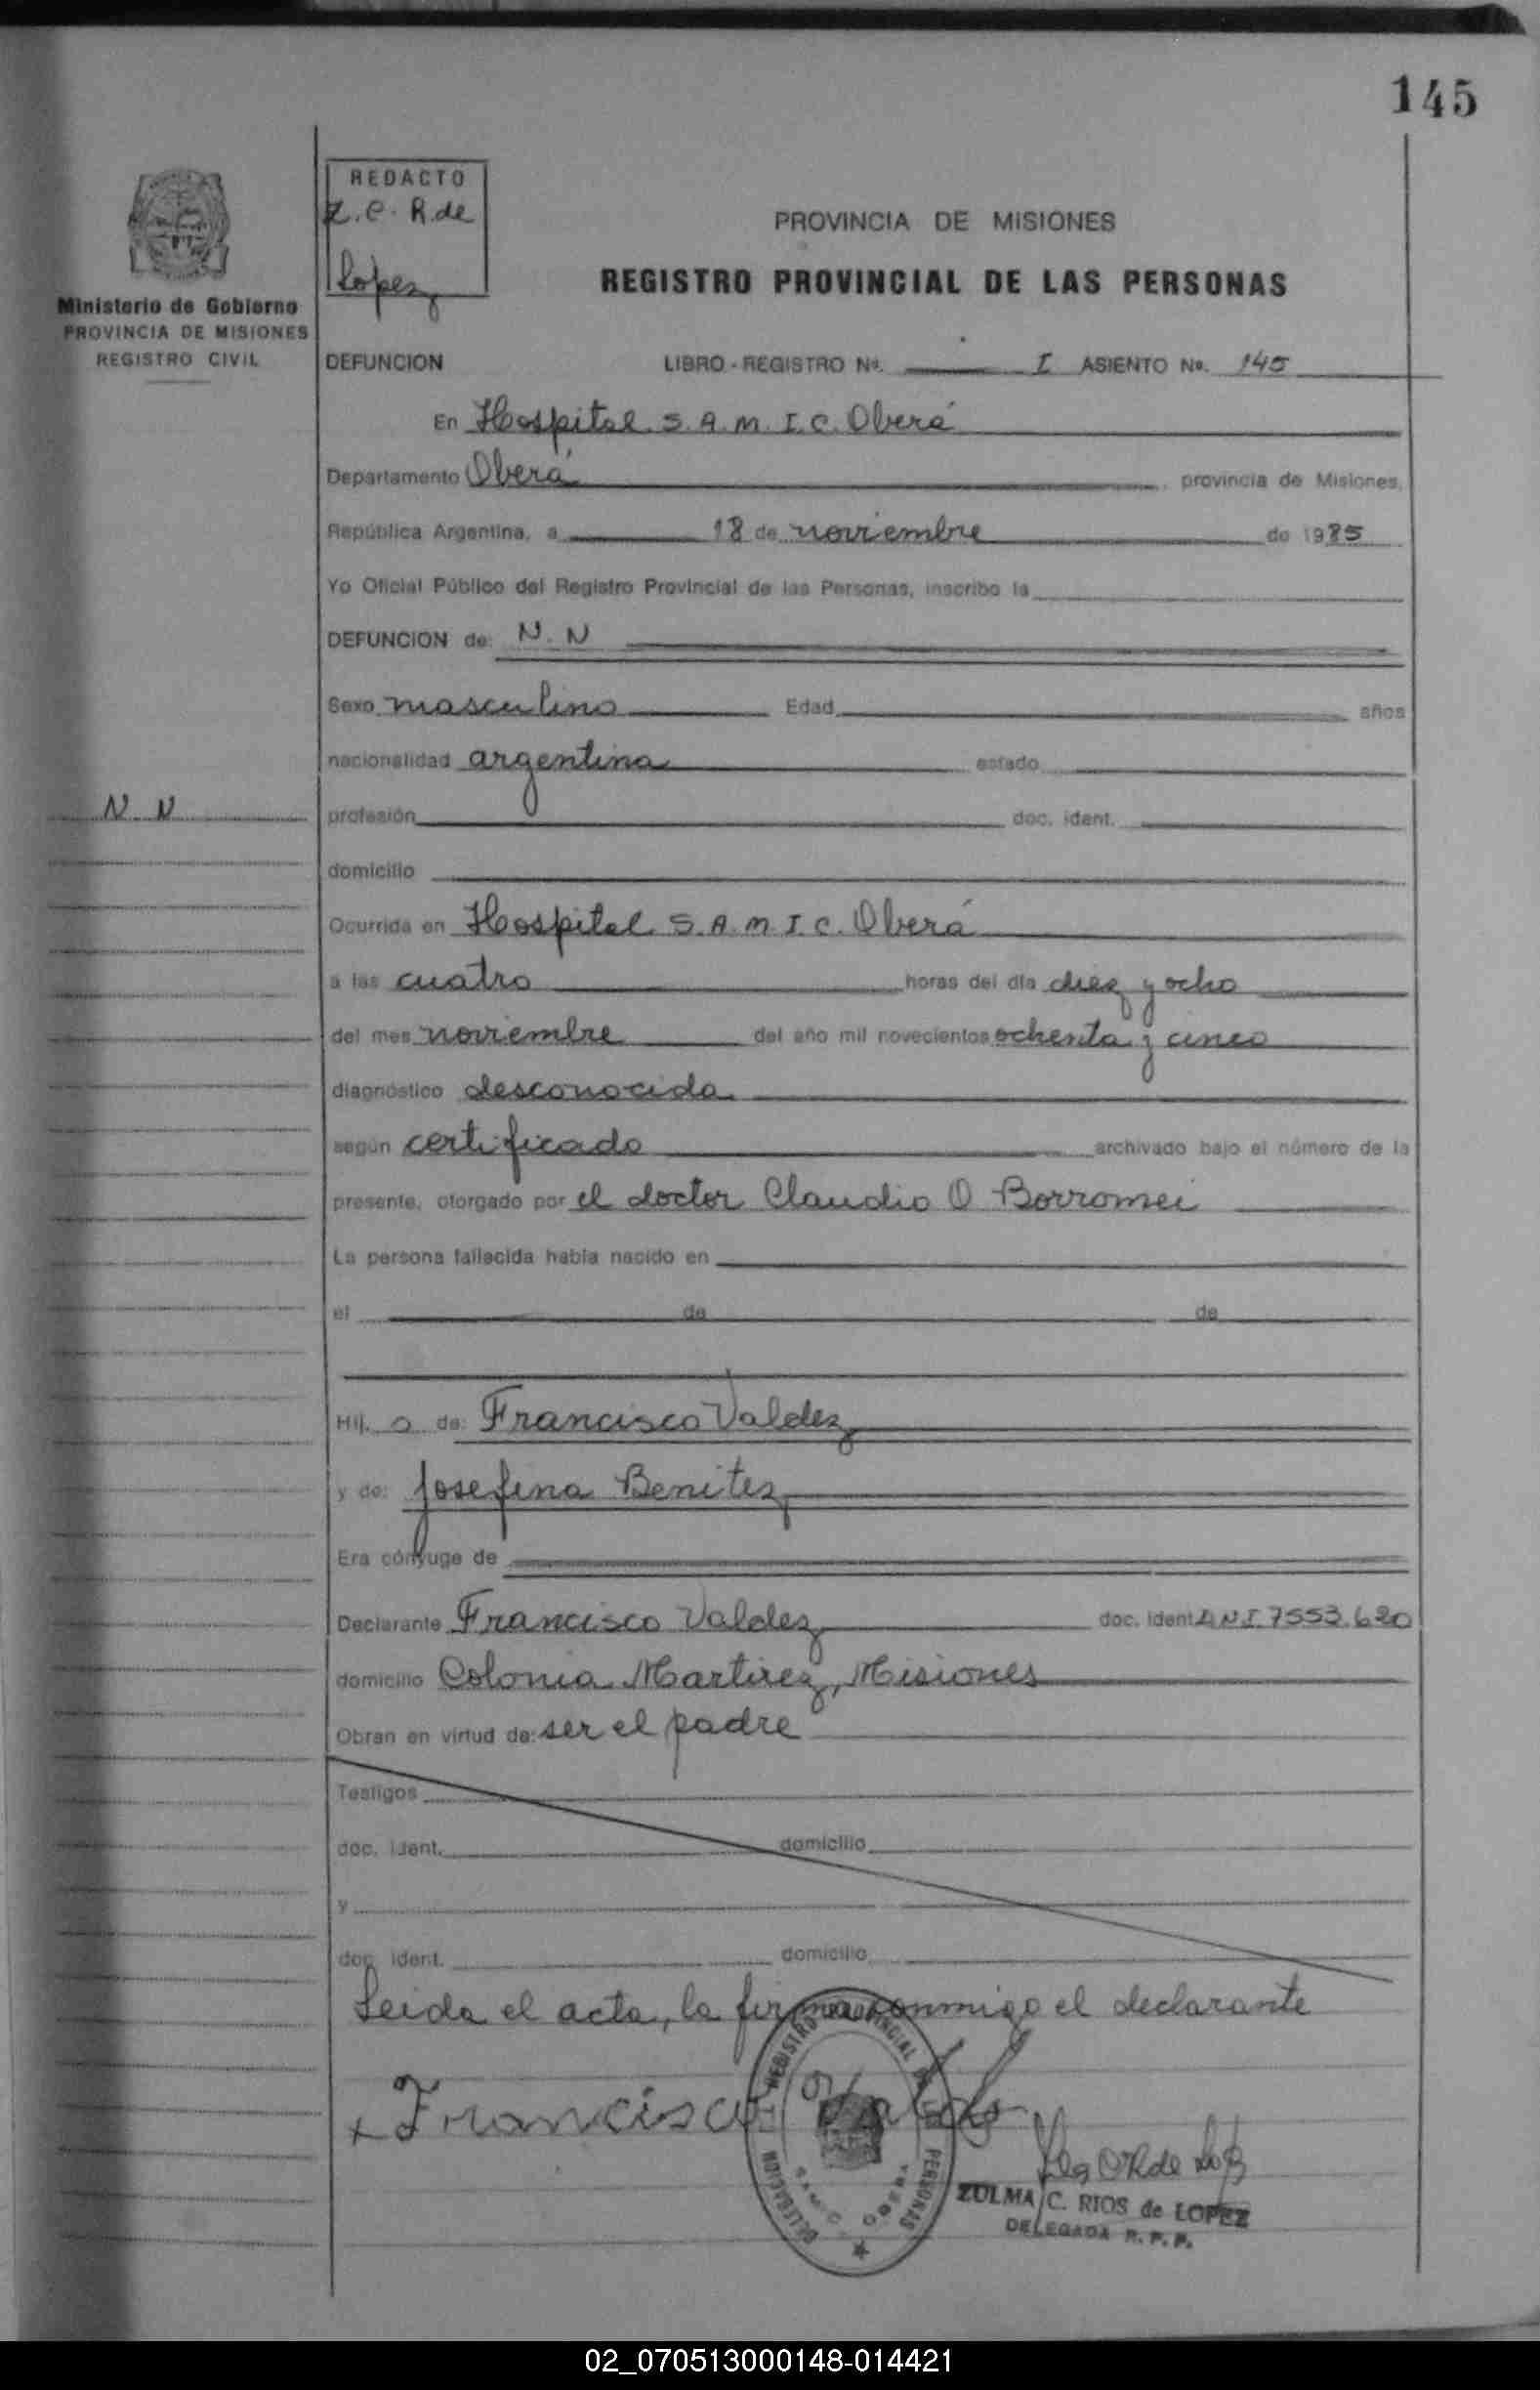 145
REDACTO
Z. C. R. de
Lopez
Ministerio de Gobierno
PROVINCIA DE MISIONES
REGISTRO CIVIL
PROVINCIA DE MISIONES
REGISTRO PROVINCIAL DE LAS PERSONAS
DEFUNCION LIBRO - REGISTRO No. I ASIENTO No. 145
En Hospital S. A. M. I. C. Oberá
Departamento Oberá, provincia de Misiones,
República Argentina, a 18 de noviembre de 1985
Yo Oficial Público del Registro Provincial de las Personas, inscribo la
DEFUNCION de: N. N
Sexo masculino Edad años
nacionalidad argentina estado
N N
profesión doc. ident.
domicilio
Ocurrida en Hospital S. A. M. I. C. Oberá
a las cuatro horas del día diez y ocho
del mes noviembre del año mil novecientos ochenta y cinco
diagnóstico desconocida
según certificado archivado bajo el número de la
presente, otorgado por el doctor Claudio O Borromei
La persona fallecida había nacido en
el de de
Hij. o de: Francisco Valdez
y de: Josefina Benitez
Era cónyuge de
Declarante Francisco Valdez doc. ident D.N.I. 7553.620
domicilio Colonia Martirez, Misiones
Obran en virtud de: ser el padre
Testigos
doc. ident. domicilio
y
doc. ident. domicilio
Leida el acta, la firma conmigo el declarante
x Francisco Valdez
DELEGACION REGISTRO PROVINCIAL DE LAS PERSONAS
ZULMA C. RIOS de LOPEZ
DELEGADA R. P. P.
02_070513000148-014421